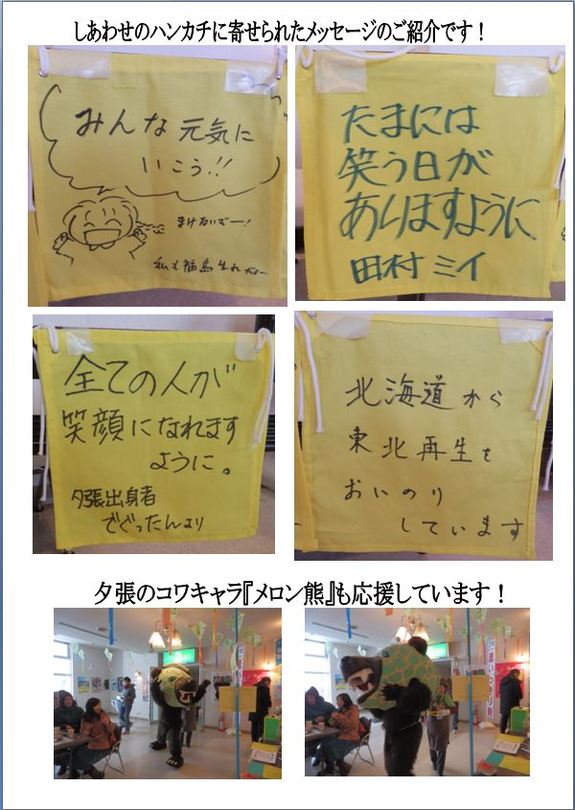 しあわせのハンカチに寄せられたメッセージのご紹介です！
みんな元気に
いこう!!
まけないぞー!
私も福島生れだよー
たまには
笑う日が
ありますように
田村ミイ
全ての人が
笑顔になれます
ように。
夕張出身者
でぐったんより
北海道から
東北再生を
おいのり
しています
夕張のコワキャラ『メロン熊』も応援しています！